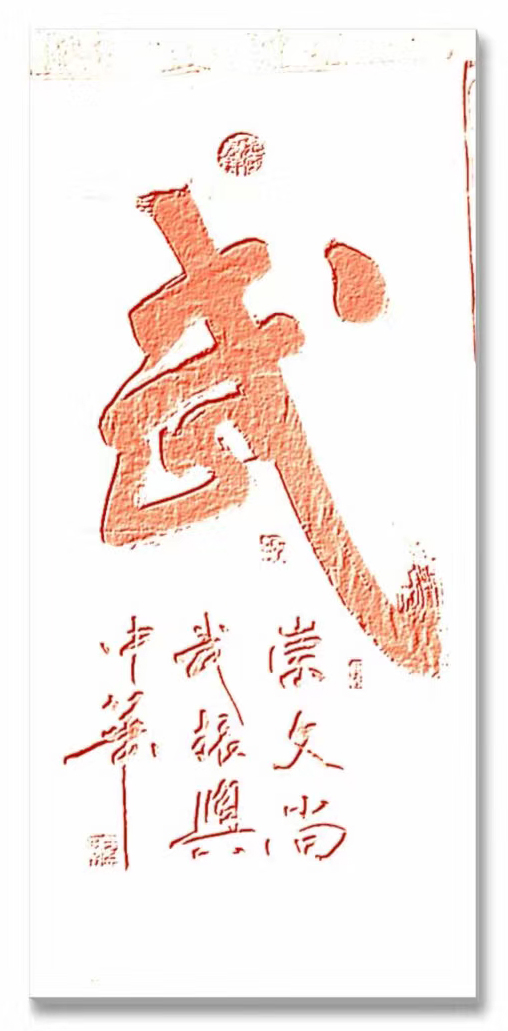 武
崇文尚
武振興
中華